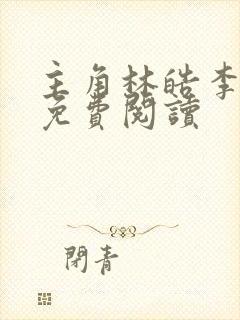 主角林皓李
免費閱讀
閉青